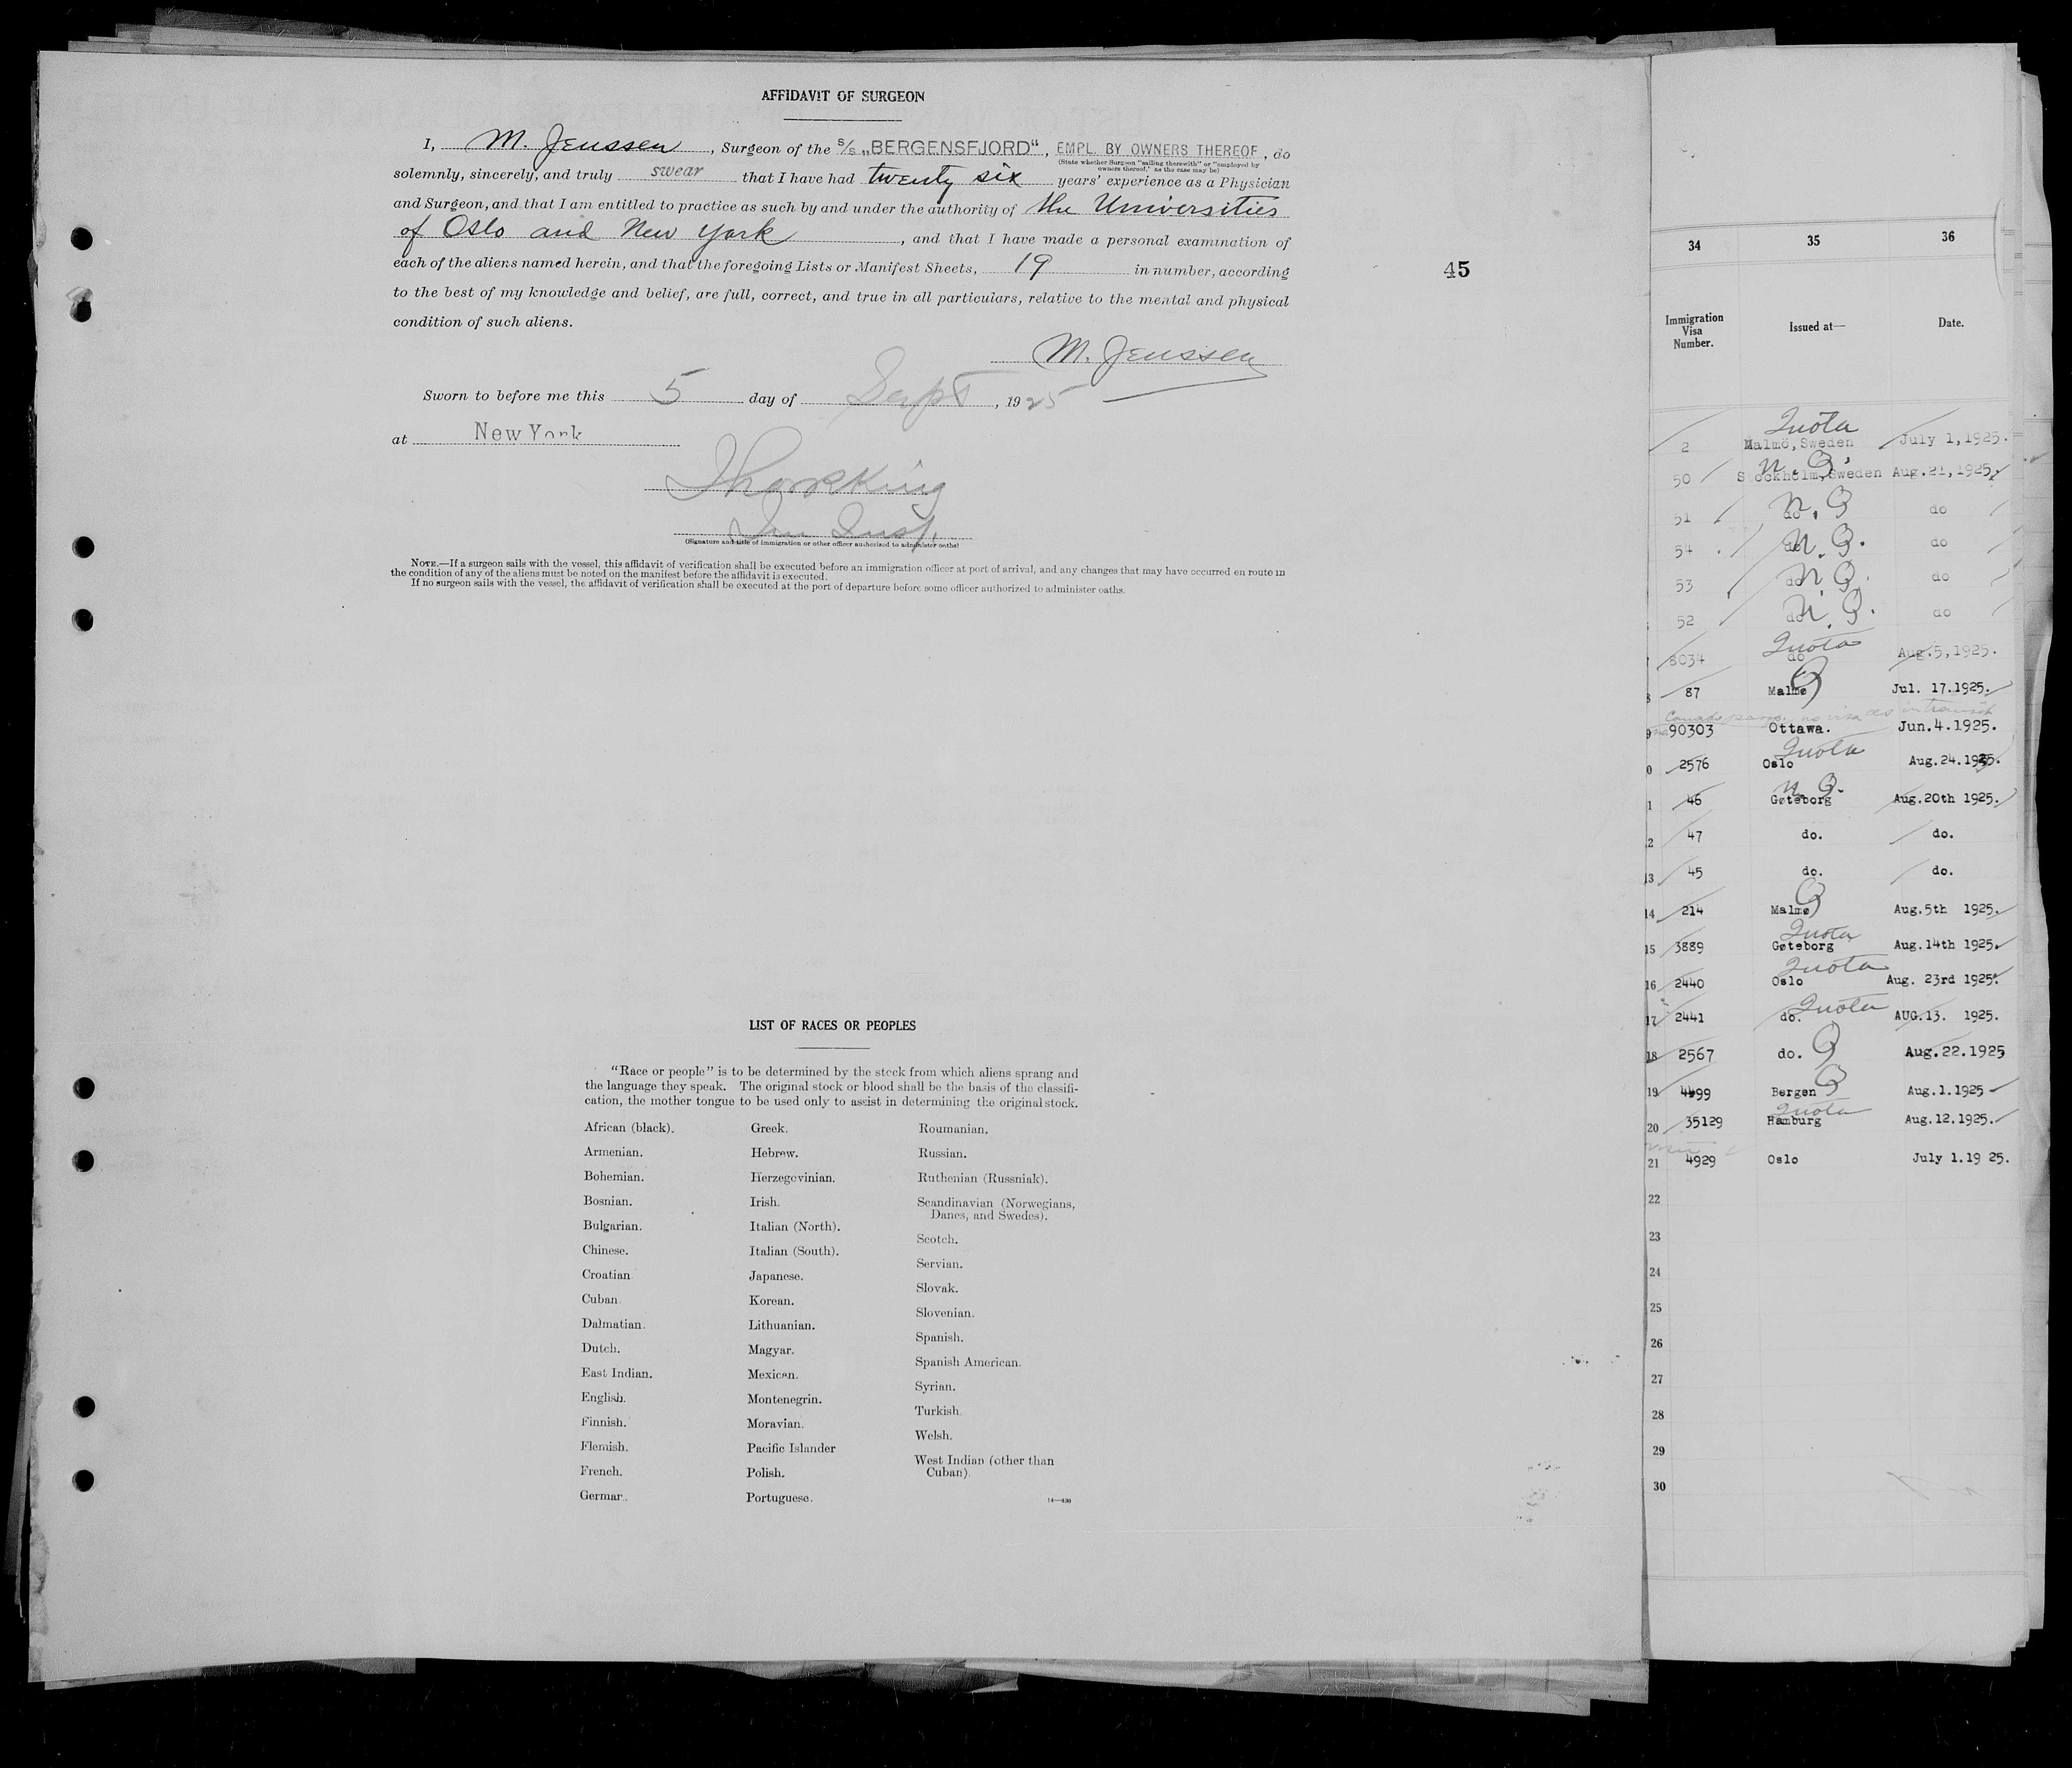 AFFIDAVIT OF SURGEON
I, M. Jenssen, Surgeon of the S/S „BERGENSFJORD“, EMPL. BY OWNERS THEREOF, do
(State whether Surgeon "sailing therewith" or "employed by
owners thereof," as the case may be)
solemnly, sincerely, and truly swear that I have had twenty six years' experience as a Physician
and Surgeon, and that I am entitled to practice as such by and under the authority of the Universities
of Oslo and New York, and that I have made a personal examination of
each of the aliens named herein, and that the foregoing Lists or Manifest Sheets, 19 in number, according
to the best of my knowledge and belief, are full, correct, and true in all particulars, relative to the mental and physical
condition of such aliens.
M. Jenssen
Sworn to before me this 5 day of Sept, 1925
at New York
(Signature and title of immigration or other officer authorized to administer oaths)
NOTE.—If a surgeon sails with the vessel, this affidavit of verification shall be executed before an immigration officer at port of arrival, and any changes that may have occurred en route in
the condition of any of the aliens must be noted on the manifest before the affidavit is executed.
If no surgeon sails with the vessel, the affidavit of verification shall be executed at the port of departure before some officer authorized to administer oaths.
45
LIST OF RACES OR PEOPLES
"Race or people" is to be determined by the stock from which aliens sprang and
the language they speak. The original stock or blood shall be the basis of the classifi-
cation, the mother tongue to be used only to assist in determining the original stock.
African (black).
Armenian.
Bohemian.
Bosnian.
Bulgarian.
Chinese.
Croatian
Cuban.
Dalmatian.
Dutch.
East Indian.
English.
Finnish.
Flemish.
French.
German.
Greek.
Hebrew.
Herzegovinian.
Irish.
Italian (North).
Italian (South).
Japanese.
Korean.
Lithuanian.
Magyar.
Mexican.
Montenegrin.
Moravian.
Pacific Islander
Polish.
Portuguese.
Roumanian.
Russian.
Ruthenian (Russniak).
Scandinavian (Norwegians,
Danes, and Swedes).
Scotch.
Servian.
Slovak.
Slovenian.
Spanish.
Spanish American.
Syrian.
Turkish.
Welsh.
West Indian (other than
Cuban).
14—430
34 35 36
Immigration Visa Number. Issued at— Date.
Quota
2 Malmö, Sweden July 1, 1925.
N.Q.
50 Stockholm, Sweden Aug. 21, 1925.
51 do N.Q do
54 do N.Q. do
53 do N.Q. do
52 do N.Q. do
Quota
8034 do Aug. 5, 1925.
87 Malmø Q Jul. 17.1925.
90303 Ottawa. Jun.4.1925.
Quota
2576 Oslo Aug.24.1925.
N.Q.
46 Gøteborg Aug.20th 1925.
47 do. do.
13 45 do. do.
14 214 Malmø Q Aug.5th 1925.
Quota
15 3889 Gøteborg Aug.14th 1925.
Quota
16 2440 Oslo Aug. 23rd 1925.
17 2441 do. Quota AUG.13. 1925.
18 2567 do. Q Aug.22.1925
19 4499 Bergen Q Aug.1.1925
Quota
20 35129 Hamburg Aug.12.1925.
21 4929 Oslo July 1.19 25.
22
23
24
25
26
27
28
29
30